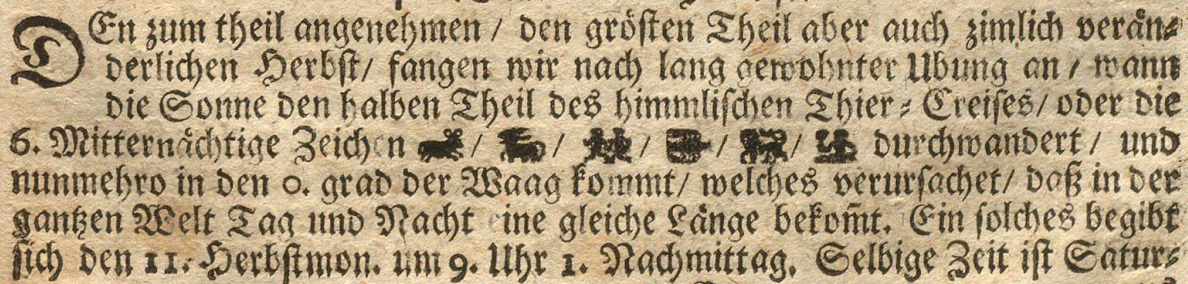 DEn zum theil angenehmen / den grösten Theil aber auch zimlich verän⸗
derlichen Herbst/ fangen wir nach lang gewohnter Ubung an / wann
die Sonne den halben Theil des himmlischen Thier⸗Creises/ oder die
6. Mitternächtige Zeichen ♈/ ♉/ ♊/ ♋/ ♌/ ♍ durchwandert / und
nunmehro in den 0. grad der Waag kommt/ welches verursachet/ daß in der
gantzen Welt Tag und Nacht eine gleiche Länge bekom̃t. Ein solches begibt
sich den 11. Herbstmon. um 9. Uhr 1. Nachmittag. Selbige Zeit ist Satur⸗